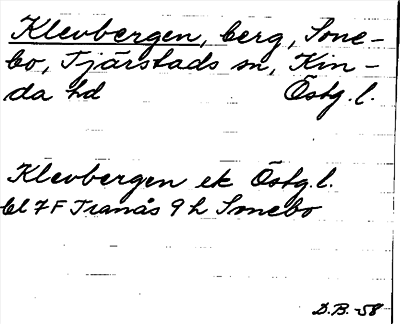 Klevbergen, berg, Sone-
bo, Tjärstads sn, Kin-
da hd Östg. l.
Klevbergen ek Östg. l.
bl 7F Tranås 9 h Sonebo
D.B. -58